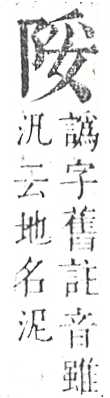 譌字舊註音雖
汎云地名泥